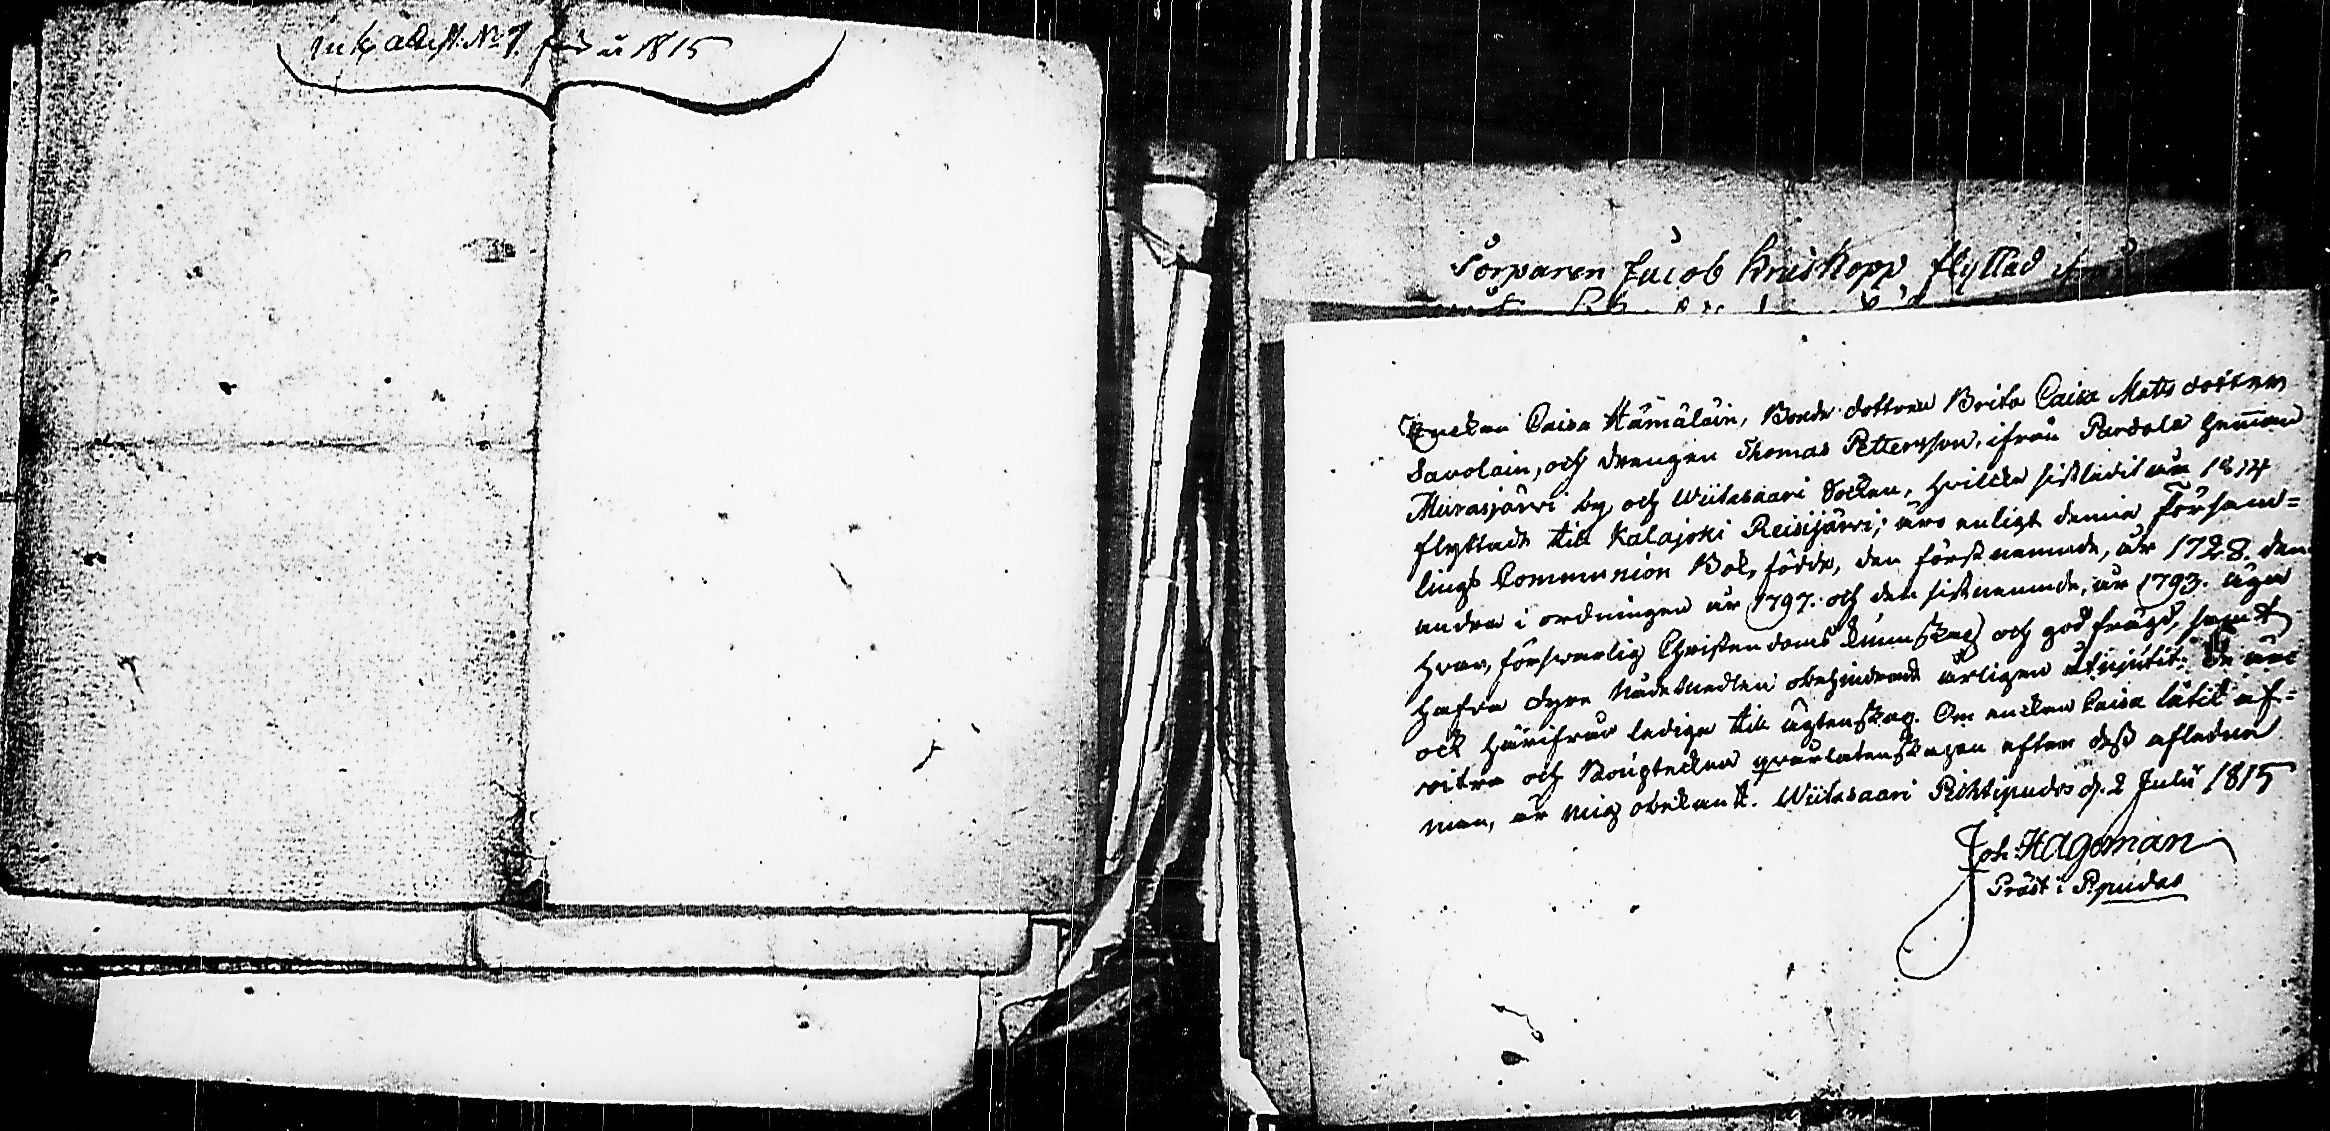 Ink. attest. No 1. för år 1815
Torparen Jacob Kruskopp, flyttad
Enckan Caisa Hämäläin, Bonde dottren Brita Caisa Mats dotter
Savolain, och drengen Thomas Pettersson, ifrån Pardola Hemman
Muurasjärvi by och Wiitasaari Socken, hvilcka sistledit år 1814
flyttade till Kalajoki Reisijärvi; äro enligt denna Församˍ=
lings Communion Bok, födde, den förstnemnde, år 1728. den
andra i ordningen år 1797. och den sistnemnde, år 1793. äga
hvar, försvarlig Christendoms kunnskap och god frägd, samt
hafva dyra Nådemedlen obehindradt årligen åtnjutit: De äro
ock härifrån ledige till ägtenskap. Om enckan Caisa låtit af=
vitra och Boupteckna qvarlatenskapen efter dess afledne
man, är mig obekant. Wiitasaari Pihtipudas d. 2 Julii 1815
Joh. Hageman
Präst i P.pudas